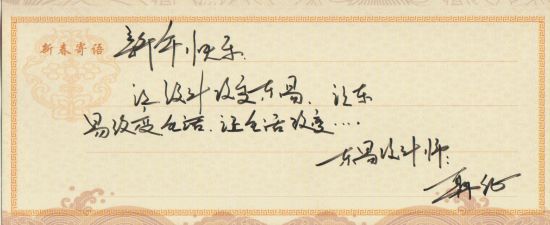 新春寄语
新年快乐
让设计改变东易、让东
易改变生活、让生活改变....
东易设计师：